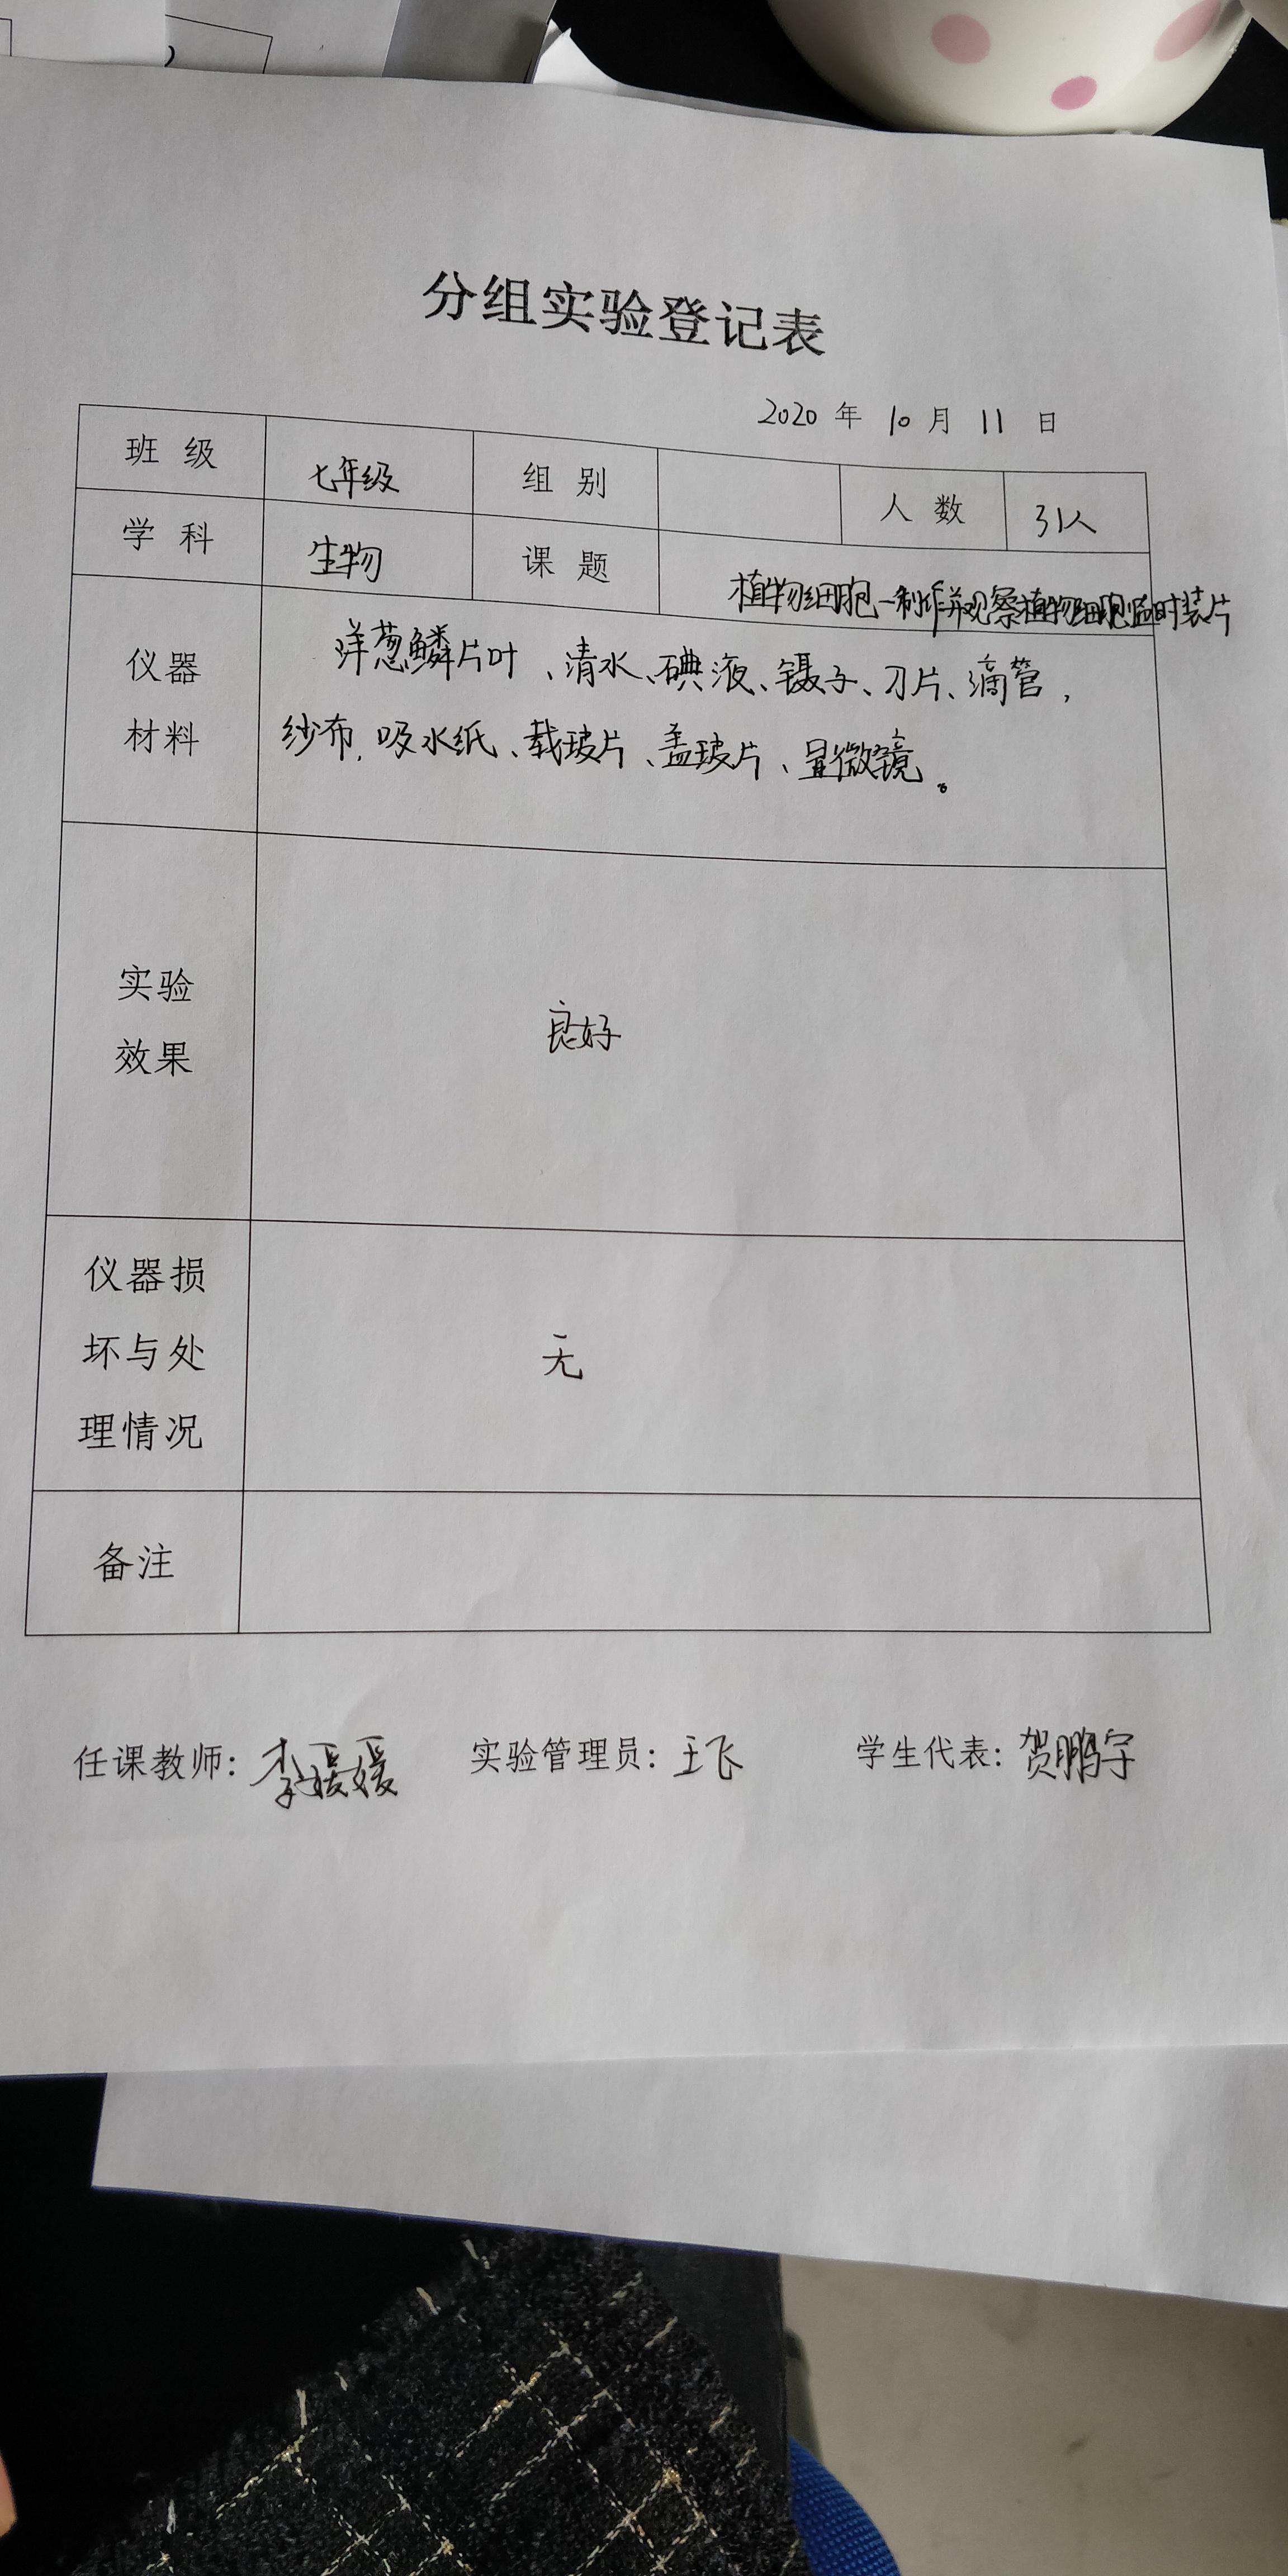 分组实验登记表
2020 年 10 月 11 日
班 级 七年级 组 别 人 数 31人
学 科 生物 课 题 植物细胞-制作并观察植物细胞临时装片
仪器
材料
洋葱鳞片叶、清水、碘液、镊子、刀片、滴管，
纱布，吸水纸、载玻片、盖玻片、显微镜。
实验
效果
良好
仪器损
坏与处
理情况
无
备注
任课教师：李媛媛 实验管理员：王飞 学生代表：贺鹏宇